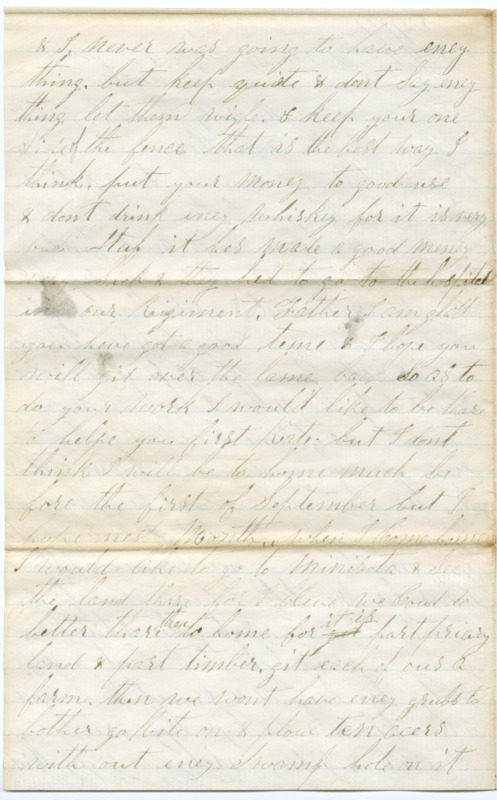 & I never was going to have eney
thing. but keep quite & dont Say eney
thing let them wigle. & keep your one
side the fence that is the best way I
think. put your money to good use
& dont drink eney whiskey for it is very
Stuf it has made a good meney
Sick & they hed to go to the hospital
in our Regiment. Father I am glad
you have got a good teme & I hope you
will git over the lame so as to
do your work I would like to be thare
to helpe you first rate. but I dont
think I will be to home much be
fore the first of September but I
hope next Month. when I come home
I would like to go to Minisota & see
the land thare for I beleve we coud do
better thare then to home for it is part priary
land & part timber. git each of ous a
farm. then we wont have eney grubs to
bother go bite on & plow ten acers
with out eney Swamp hole on it